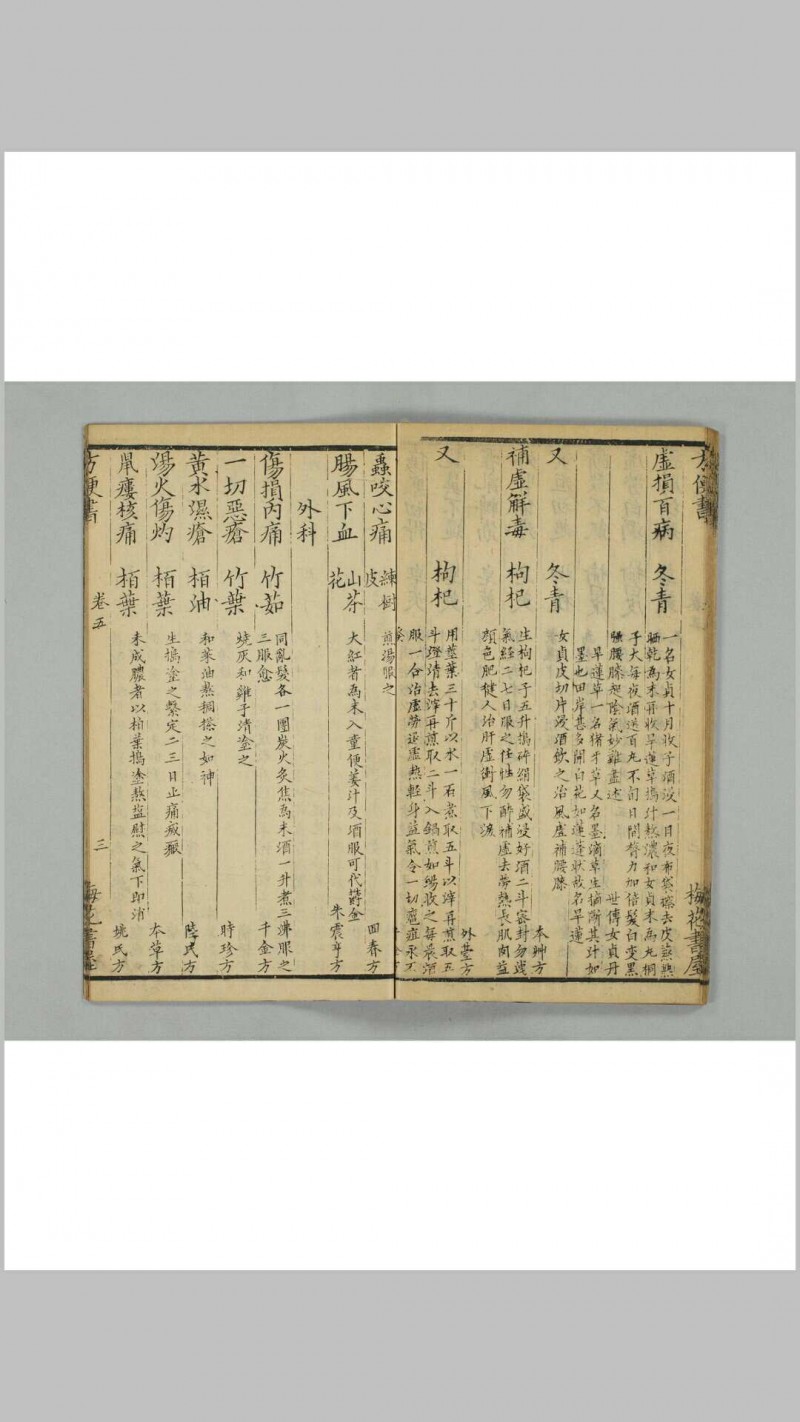 方便書
梅花書屋
虛損百病 冬青
一名女貞十月收子酒浸一日夜布袋擦去皮蒸熟
晒乾為末再收旱蓮草搗汁熬濃和女貞末為丸桐
子大每夜酒送百丸不旬日間膂力加倍髮白變黑
腰膝起陰氣妙難盡述 世傳女貞丹
旱蓮草一名猪牙草又名墨滴草生摘斷其汁如
墨也田岸甚多開白花如蓮蓬狀故名旱蓮
又 冬青
女貞皮切片浸酒飲之治風虛補腰膝 本艸方
補虛解毒 枸杞
生枸杞子五升搗碎絹袋盛浸好酒二斗密封勿洩
氣經二七日服之任性勿醉補虛去勞熱長肌肉益
顏色肥健人治肝虛衝風下淚 外臺方
又 枸杞
用莖葉三十斤以水一石煮取五斗以滓再煎取五
斗澄清去滓再煎取二斗入鍋煎如餳收之每晨酒
服一合治虛勞退虛熱輕身益氣令一切
蟲咬心痛 楝樹皮
煎湯服之 回春方
腸風下血 山茶花
大紅者為末入童便薑汁及酒服可代鬱金 朱震亨方
外科
傷損內痛 竹茹
同亂髮各一團炭火炙焦為末酒一升煮三沸服之
三服愈 千金方
一切惡瘡 竹葉
燒灰和雞子清塗之 時珍方
黃水濕瘡 栢油
和菜油熬稠搽之如神 陸氏方
湯火傷灼 栢葉
生搗塗之繫定二三日止痛滅瘢 本草方
鼠瘻核痛 栢葉
未成膿者以柏葉搗塗熬鹽熨之氣下即消 姚氏方
方便書 卷五 三 梅花書屋